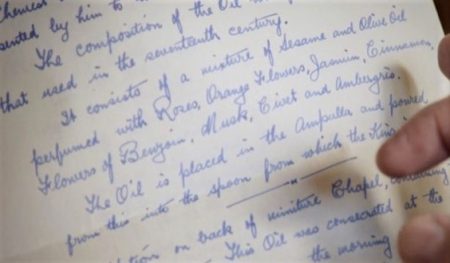 Chemist
sented by him to
The composition of the Oil
that used in the seventeenth century.
It consists of a mixture of Sesame and Olive Oil
perfumed with Roses, Orange Flowers, Jasmin, Cinnamon,
Flowers of Benzoin, Musk, Civet and Ambergris.
The Oil is placed in the Ampulla and poured
from this into the spoon from which the King
on back of miniture Chapel, containing
This Oil was consecrated at the
the morning